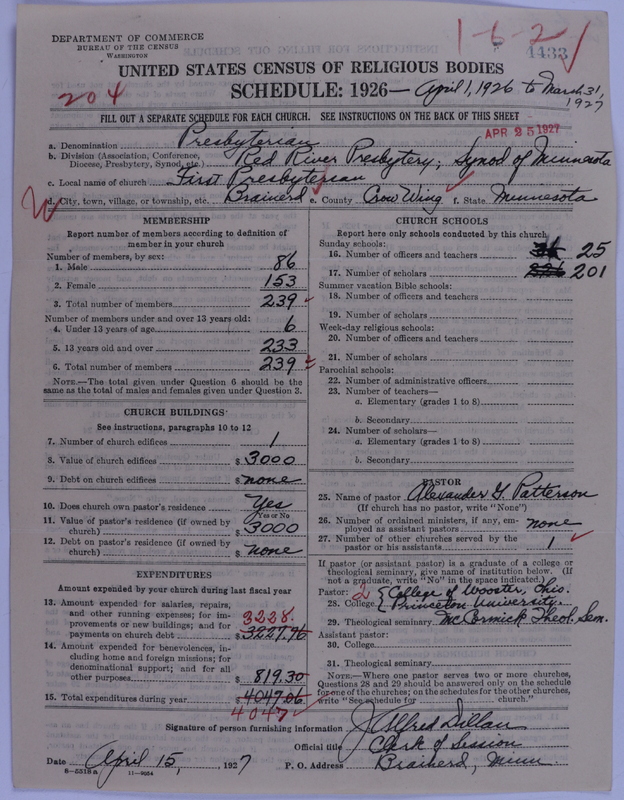 DEPARTMENT OF COMMERCE
BUREAU OF THE CENSUS
WASHINGTON
1-6-2
4433
UNITED STATES CENSUS OF RELIGIOUS BODIES
204
SCHEDULE: 1926— April 1, 1926 to March 31, 1927
FILL OUT A SEPARATE SCHEDULE FOR EACH CHURCH. SEE INSTRUCTIONS ON THE BACK OF THIS SHEET
APR 25 1927
a. Denomination Presbyterian
b. Division (Association, Conference, Diocese, Presbytery, Synod, etc.) Red River Presbytery; Synod of Minnesota
c. Local name of church First Presbyterian
d. City, town, village, or township, etc. Brainerd e. County Crow Wing f. State Minnesota
MEMBERSHIP
Report number of members according to definition of
member in your church
Number of members, by sex:
1. Male 86
2. Female 153
3. Total number of members 239
Number of members under and over 13 years old:
4. Under 13 years of age 6
5. 13 years old and over 233
6. Total number of members 239
NOTE.—The total given under Question 6 should be the
same as the total of males and females given under Question 3.
CHURCH BUILDINGS
See instructions, paragraphs 10 to 12
7. Number of church edifices 1
8. Value of church edifices $3000
9. Debt on church edifices $none
10. Does church own pastor's residence Yes
Yes or No
11. Value of pastor's residence (if owned by
church) $3000
12. Debt on pastor's residence (if owned by
church) $none
EXPENDITURES
Amount expended by your church during last fiscal year
13. Amount expended for salaries, repairs,
and other running expenses; for im- 3228.
provements or new buildings; and for
payments on church debt $3227.76
14. Amount expended for benevolences, in-
cluding home and foreign missions; for
denominational support; and for all
other purposes $819.30
15. Total expenditures during year $4047.06
4047
CHURCH SCHOOLS
Report here only schools conducted by this church
Sunday schools:
16. Number of officers and teachers 25
17. Number of scholars 201
Summer vacation Bible schools:
18. Number of officers and teachers
19. Number of scholars
Week-day religious schools:
20. Number of officers and teachers
21. Number of scholars
Parochial schools:
22. Number of administrative officers
23. Number of teachers—
a. Elementary (grades 1 to 8)
b. Secondary
24. Number of scholars—
a. Elementary (grades 1 to 8)
b. Secondary
PASTOR
25. Name of pastor Alexander G. Patterson
(If church has no pastor, write "None")
26. Number of ordained ministers, if any, em-
ployed as assistant pastors none
27. Number of other churches served by the
pastor or his assistants 1
If pastor (or assistant pastor) is a graduate of a college or
theological seminary, give name of institution below. (If
not a graduate, write "No" in the space indicated.)
Pastor: 2 College of Wooster, Ohio.
28. College Princeton University.
29. Theological seminary McCormick Theol. Sem.
Assistant pastor:
30. College
31. Theological seminary
NOTE.—Where one pastor serves two or more churches,
Questions 28 and 29 should be answered only on the schedule
for one of the churches; on the schedules for the other churches,
write "See schedule for church."
Signature of person furnishing information J. Alfred Dillan
Official title Clerk of Session
Date April 15, 1927 P. O. Address Brainerd, Minn
8-5518a 11-9054